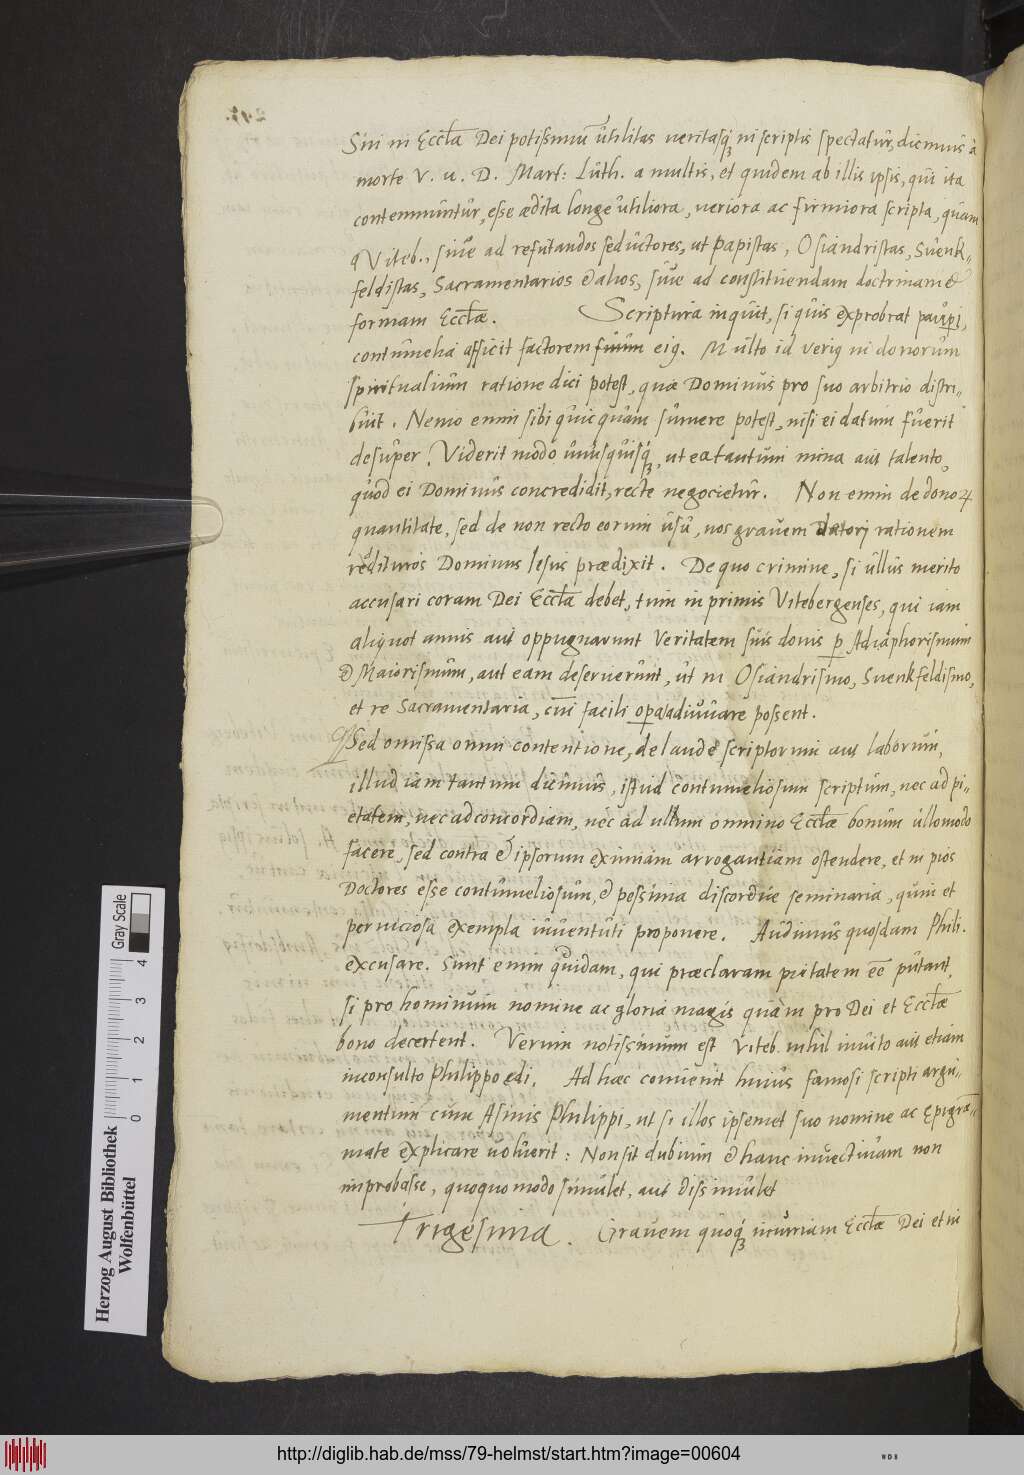 Sin in Eccła Dei potissimū utilitas veritasq́ʒ in scriptis spectatur, dicimus à
morte V. u. D. Mart: Luth. a multis, et quidem ab illis ipsis, qui ita
contemnuntur, esse ædita longe utiliora, veriora ac firmiora scripta, quam
Viteb., siue ad refutandos seductores, ut Papistas, Osiandristas, Suenk-
feldistas, Sacramentarios & alios, siue ad constituendam doctrinam &
formam Eccłæ. Scriptura inquit, si quis exprobrat pauperi,
contumelia afficit factorem eius. Multo id verius in donorum
spiritualium ratione dici potest, quæ Dominus pro suo arbitrio distri-
buit. Nemo enim sibi quicquam sumere potest, nisi ei datum fuerit
desuper. Viderit modo unusquisq́ʒ, ut ea tantum mina aut talento,
quod ei Dominus concredidit, recte negocietur. Non enim de donoꝝ
quantitate, sed de non recto eorum usu, nos gravem Datori rationem
reddituros Dominus Iesus prædixit. De quo crimine, si ullus merito
accusari coram Dei Eccła debet, tum in primis Vitebergenses, qui iam
aliquot annis aut oppugnarunt veritatem suis donis ꝑ Adiaphorismum
& Maiorismum, aut eam deseruerunt, ut in Osiandrismo, Suenkfeldismo,
et re Sacramentaria, cui facili opera adiuuare possent.
Sed omissa omni contentione, de laude scriptorum aut laborum,
illud iam tantum dicimus, istud contumeliosum scriptum, nec ad pi-
etatem, nec ad concordiam, nec ad ullum omnino Eccłæ bonum ullo modo
facere, sed contra & ipsorum eximiam arrogantiam ostendere, et in pios
Doctores esse contumeliosum, & pessima discordiæ seminaria, quin et
perniciosa exempla iuuentuti proponere. Audimus quosdam Phili.
excusare. Sunt enim quidam, qui præclaram pietatem eē putant,
si pro hominum nomine ac gloria magis quàm pro Dei et Eccłæ
bono decertent. Verum notissimum est Viteb. nihil inuito aut etiam
inconsulto Philippo edi. Ad hæc conuenit huius famosi scripti argu-
mentum cum Asinis Philippi, ut si illos ipsemet suo nomine ac Epigrā-
mate explicare voluerit: Non sit dubium & hanc inuectiuam non
improbasse, quoquo modo simulet, aut dissimulet
Trigesima. Grauem quoq́ʒ iniuriam Eccłæ Dei et in
Herzog August Bibliothek
Wolfenbüttel
Gray Scale
0 1 2 3 4
http://diglib.hab.de/mss/79-helmst/start.htm?image=00604